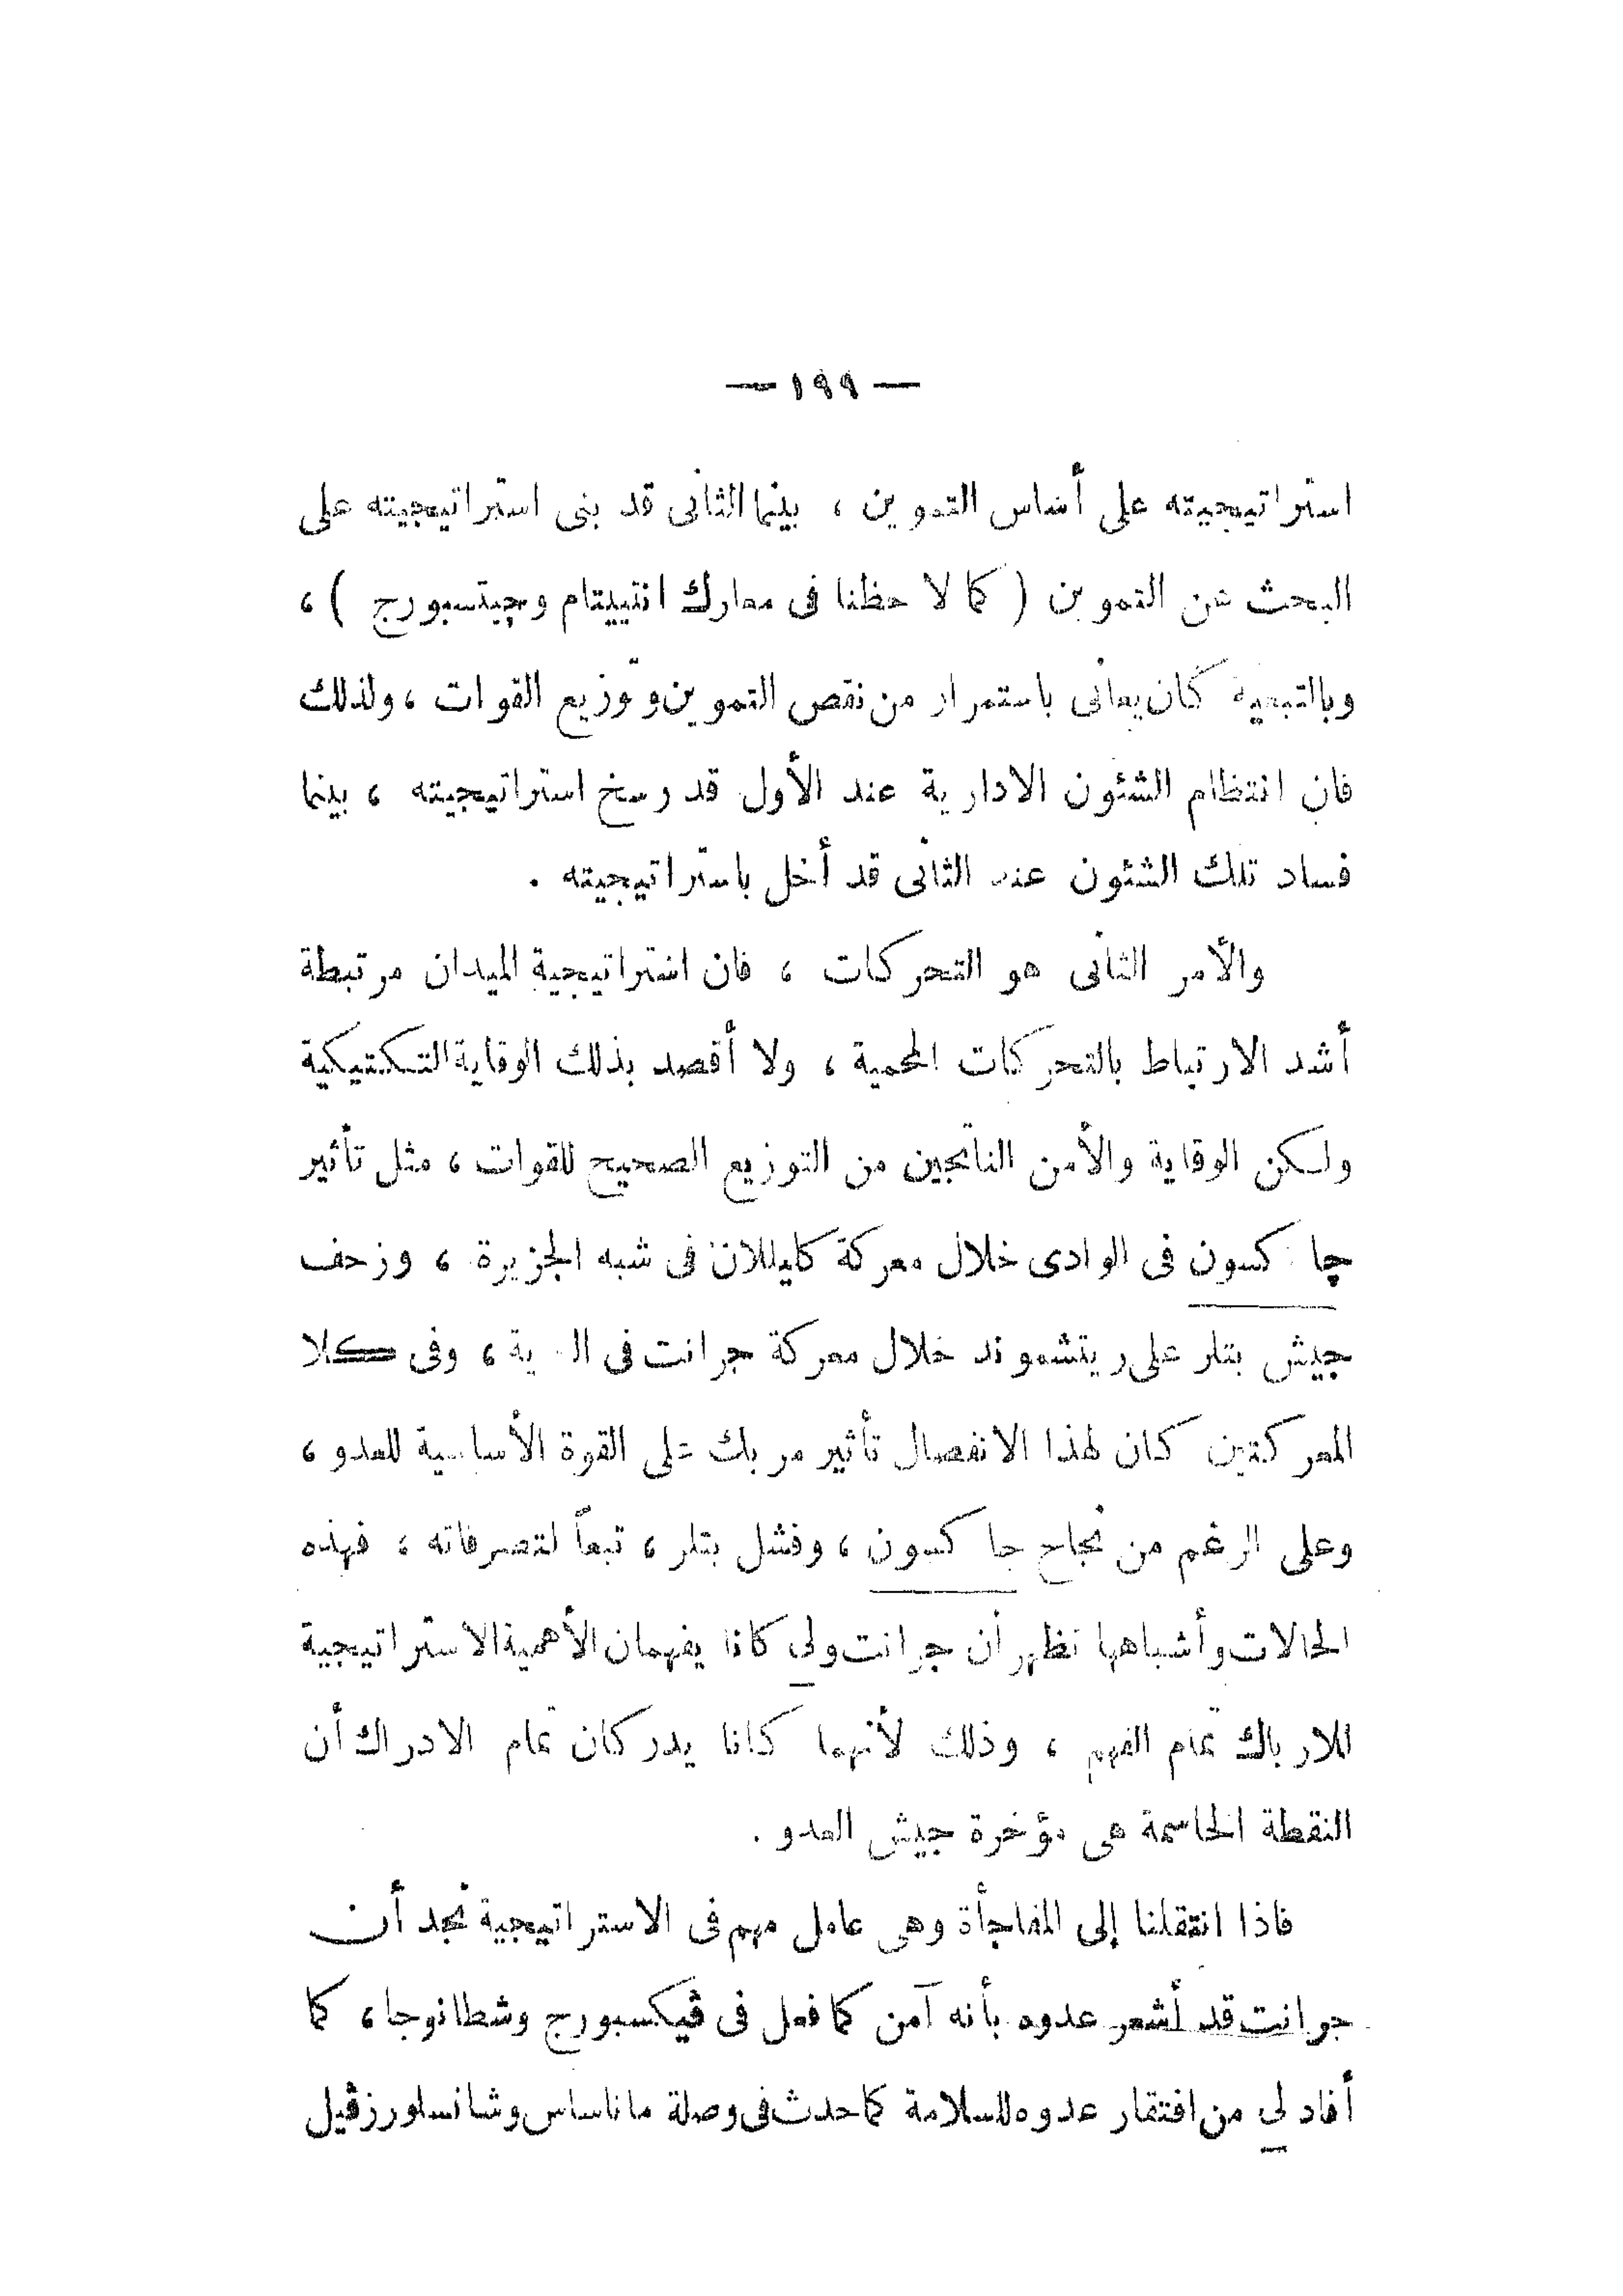 — ١٩٩ —
استراتيجيته على أساس التموين ، بينما الثانى قد بنى استراتيجيته على
البحث عن التموين ( كما لاحظنا فى معارك انتييتام وچيتسبورج ) ،
وبالتبعية كان يعانى باستمرار من نقص التموين وتوزيع القوات ، ولذلك
فان انتظام الشئون الادارية عند الأول قد رسخ استراتيجيته ، بينما
فساد تلك الشئون عند الثانى قد أخل باستراتيجيته .
والأمر الثانى هو التحركات ، فان استراتيجية الميدان مرتبطة
أشد الارتباط بالتحركات المحمية ، ولا أقصد بذلك الوقاية التكتيكية
ولكن الوقاية والأمن الناتجين من التوزيع الصحيح للقوات ، مثل تأثير
چاكسون فى الوادى خلال معركة كليللان فى شبه الجزيرة ، وزحف
جيش بتلر على ريتشموند خلال معركة جرانت فى ، وفى كلا
المعركتين كان لهذا الانفصال تأثير مربك على القوة الأساسية للعدو ،
وعلى الرغم من نجاح جاكسون ، وفشل بتلر ، تبعاً لتصرفاته ، فهذه
الحالات وأشباهها تظهر أن جرانت ولى كانا يفهمان الأهمية الاستراتيجية
للارباك تمام الفهم ، وذلك لأنهما كانا يدركان تمام الادراك أن
النقطة الحاسمة هى مؤخرة جيش العدو .
فاذا انتقلنا إلى المفاجأة وهى عامل مهم فى الاستراتيجية نجد أن
جرانت قد أشعر عدوه بأنه آمن كما فعل فى ڤيكسبورج وشطانوجا ، كما
أفاد لي من افتقار عدوه للسلامة كما حدث فى وصلة ماناساس وشانسلورزڤيل